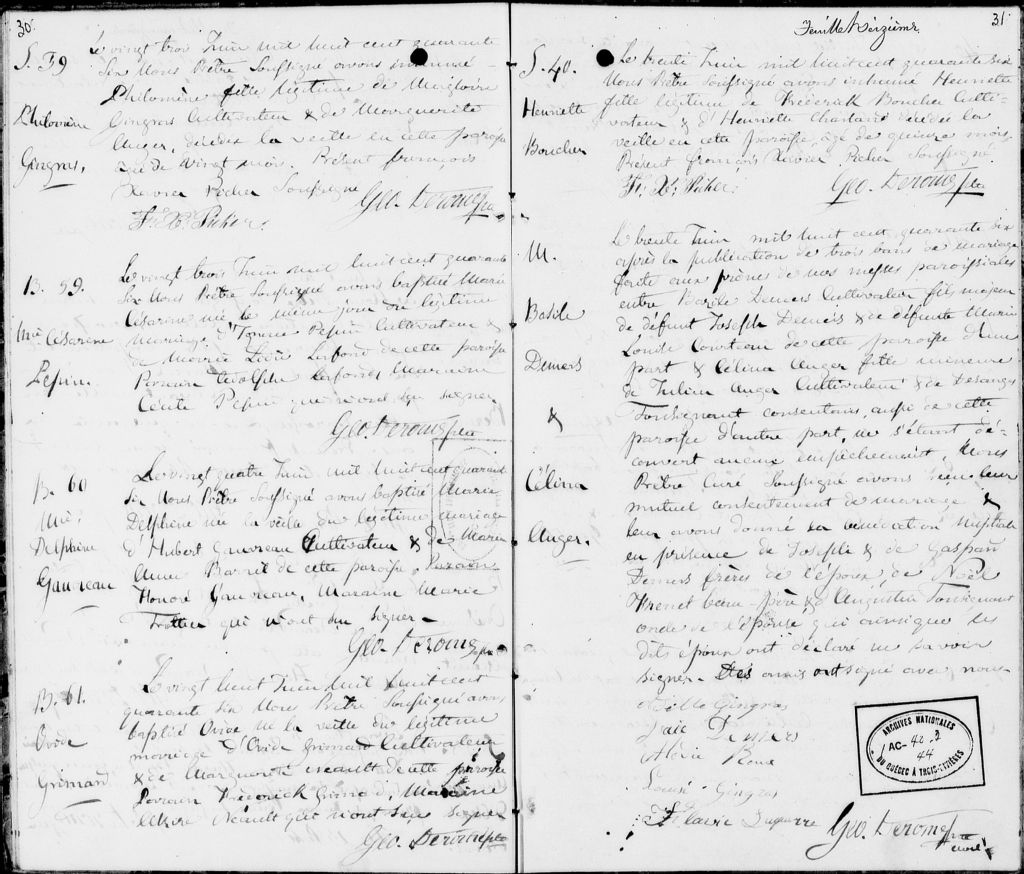 30.
S. 59
Philomène
Gingras,
Le vingt trois Juin mil huit cent quarante
Six Nous Prêtre Soussigné avons inhumé
Philomène fille légitime de
Gingras Cultivateur & de Marguerite
Auger, décédée la veille en cette paroisse
agée de vingt mois. Présent françois
Xavier Picher Soussigné
Geo. Derome Ptre
Fr. X. Picher.
B. 59.
Mie Césarine
Pepin.
Le vingt trois Juin mil huit cent quarante
Six Nous Prêtre Soussigné avons baptisé Marie
Césarine née le même jour du légitime
mariage d'Ignace Pepin Cultivateur &
de Marie Lafond de cette paroisse
Parrain Adolphe Lafond, Marraine
Cécile Pepin qui n'ont su signer
Geo. Derome Ptre
B. 60
Mie.
Delphine
Gauvreau
Le vingt quatre Juin mil huit cent quarante
Six Nous Prêtre Soussigné avons baptisé Marie
Delphine née la veille du légitime mariage
d'Hubert Gauvreau Cultivateur & de Marie
Anne Barril de cette paroisse. Parrain
Honoré Gauvreau, Marraine Marie
Trottier qui n'ont su signer
Geo. Derome Ptre
B. 61.
Ovide
Grimard
Le vingt huit Juin mil huit cent
quarante Six Nous Prêtre Soussigné avons
baptisé Ovide né la veille du légitime
mariage d'Ovide Grimard Cultivateur
& de Marguerite de cette paroisse
Parrain Frederick Grimard, Marraine
qui n'ont su signer
Geo. Derome Ptre
Feuille Seizième
31
S. 40.
Henriette
Boucher
Le trente Juin mil huit cent quarante six
Nous Prêtre Soussigné avons inhumé Henriette
fille légitime de Frederick Boucher Culti-
vateur & d'Henriette Chartand décédée la
veille en cette paroisse, agée de quinze mois.
Présent François Xavier Picher Soussigné.
Fr. X. Picher.
Geo. Derome Ptre
M.
Basile
Demers
&
Célina
Auger.
Le trente Juin mil huit cent quarante six
après la publication de trois bans de mariage
faite aux prônes de nos messes paroissiales
entre Basile Demers Cultivateur fils majeur
de défunt Joseph Demers & de défunte Marie
Louise Courteau de cette paroisse d'une
part & Célina Auger fille mineure
de Julien Auger Cultivateur & de Desanges
Tousignant consentants, aussi de cette
paroisse d'autre part, ne s'étant dé-
couvert aucun empêchement, Nous
Prêtre Curé Soussigné avons reçu leur
mutuel consentement de mariage &
leur avons donné la bénédiction nuptiale
en présence de Joseph & de Gaspard
Demers frères de l'époux, de Noël
beau-père & d'Augustin Tousignant
oncle de l'épouse qui ainsi que les
dits époux ont déclaré ne savoir
signer. Des amis ont signé avec nous
Gingras
Demers
Louise Gingras
Flavie
Geo. Derome Ptre
curé
ARCHIVES NATIONALES
AC- 42.3
44
DU QUÉBEC À TROIS-RIVIÈRES